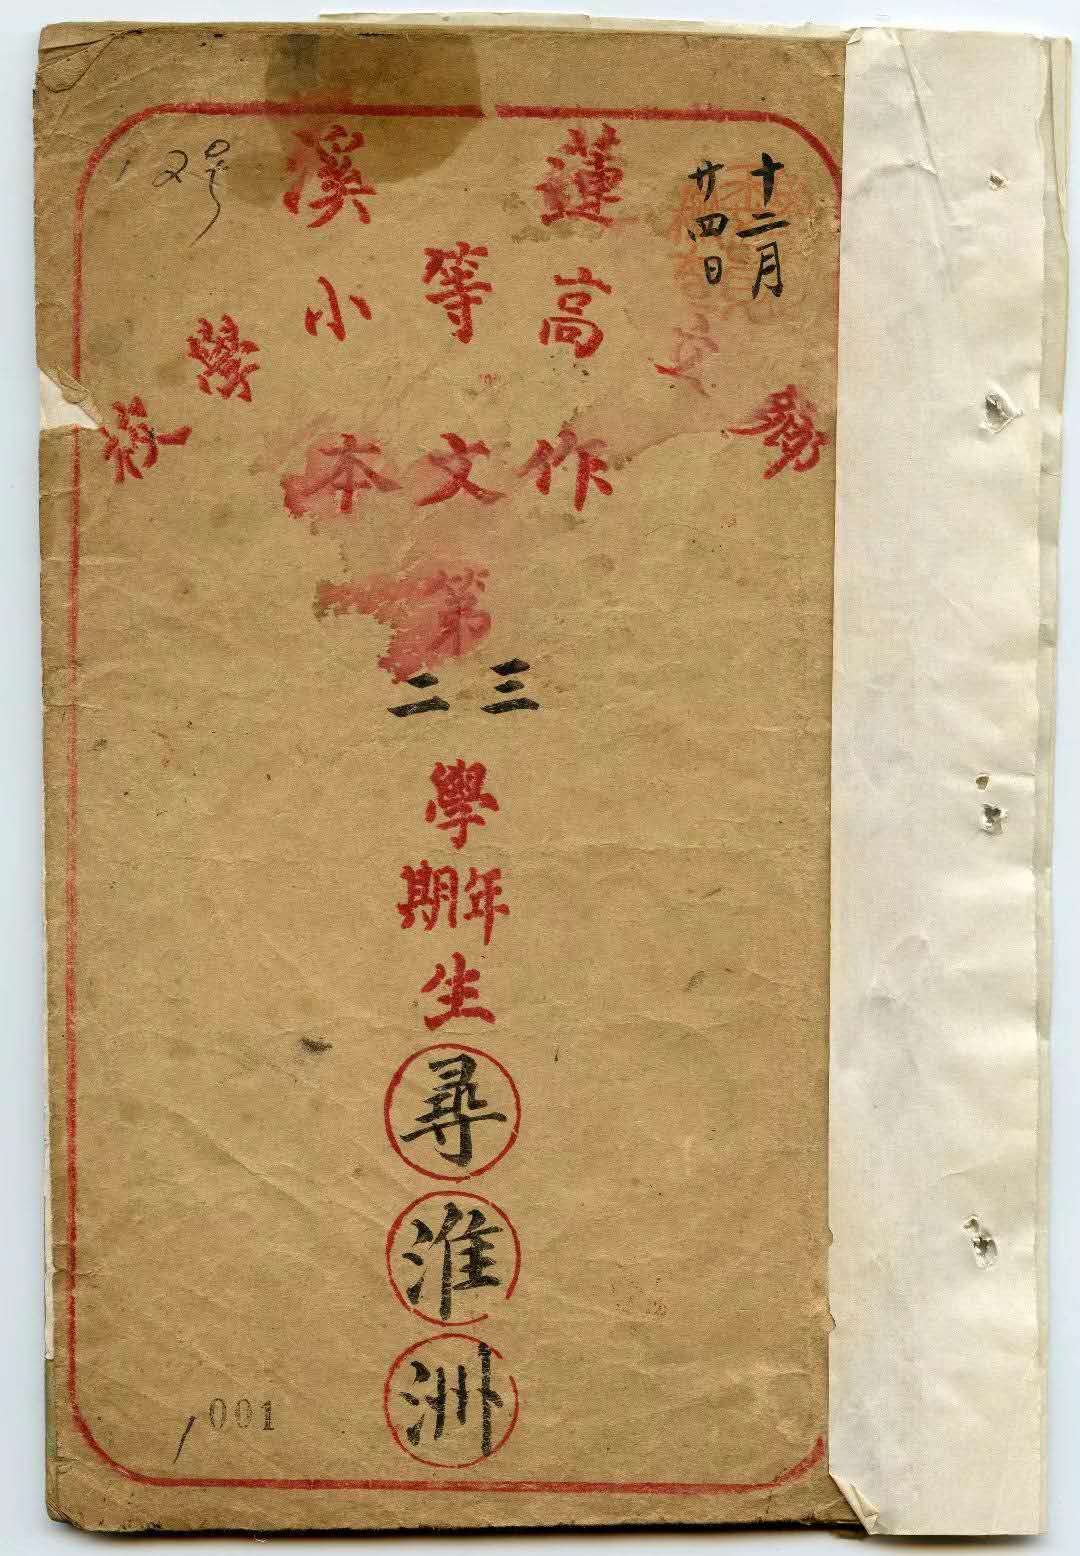 十二月
廿四日
鄉立
蓮溪
高等小
學校
作文本
第
三
二
學
年
期
生
尋淮洲
001